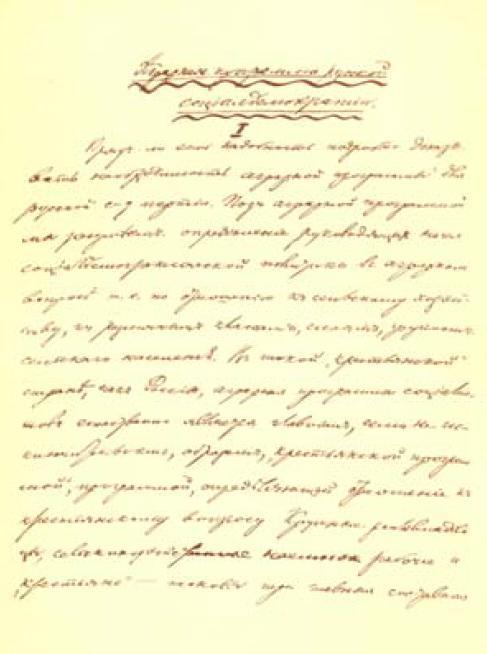 Аграрная программа русской
социалдемократии.
I
Вряд ли есть надобность подробно доказы-
вать необходимость аграрной программы для
русской с.-д. партии. Под аграрной программой
мы разумеем определение руководящих начал
социал-демократической политики в аграрном
вопросе, т. е. по отношению к сельскому хозяй-
ству, к различным классам, слоям, группам
сельского населения. В такой „крестьянской“
стране, как Россия, аграрная программа социали-
стов естественно является главным, если не ис-
ключительно, образом, крестьянской програм-
мой, программой, определяющей отношение к
крестьянскому вопросу. Крупные землевладель-
цы, наемные рабочие и
„крестьяне“ — таковы три главных составных